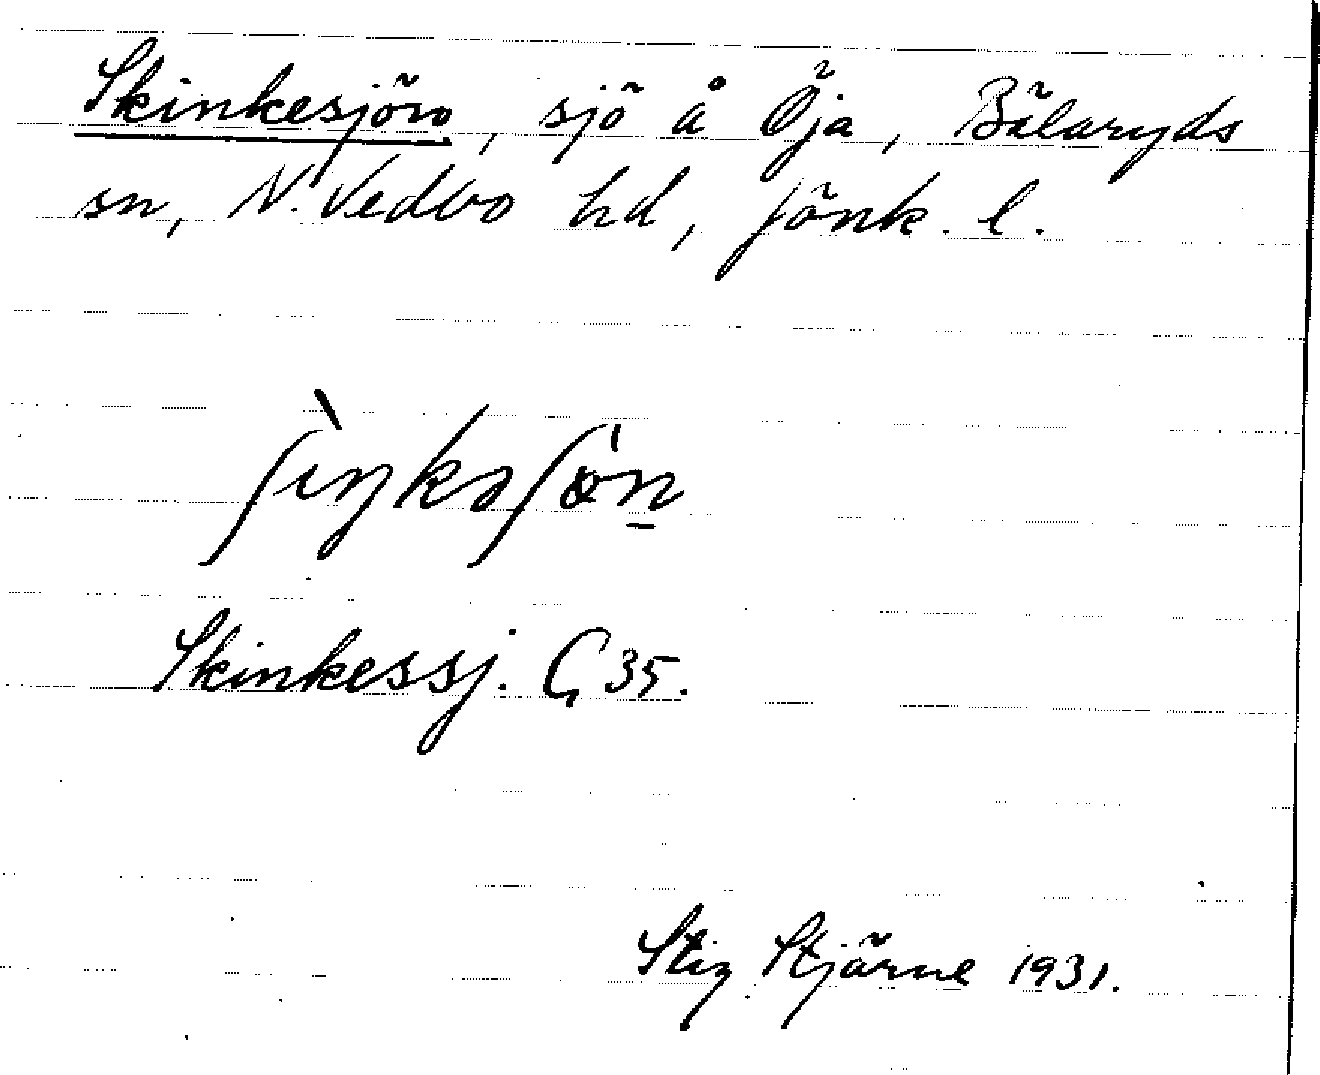 Skinkesjön, sjö å Öja, Bälaryds
sn, N. Vedbo hd, Jönk. l.
ʃìŋkəʃön̲
Skinkessj. G 35.
Stig Stjärne 1931.